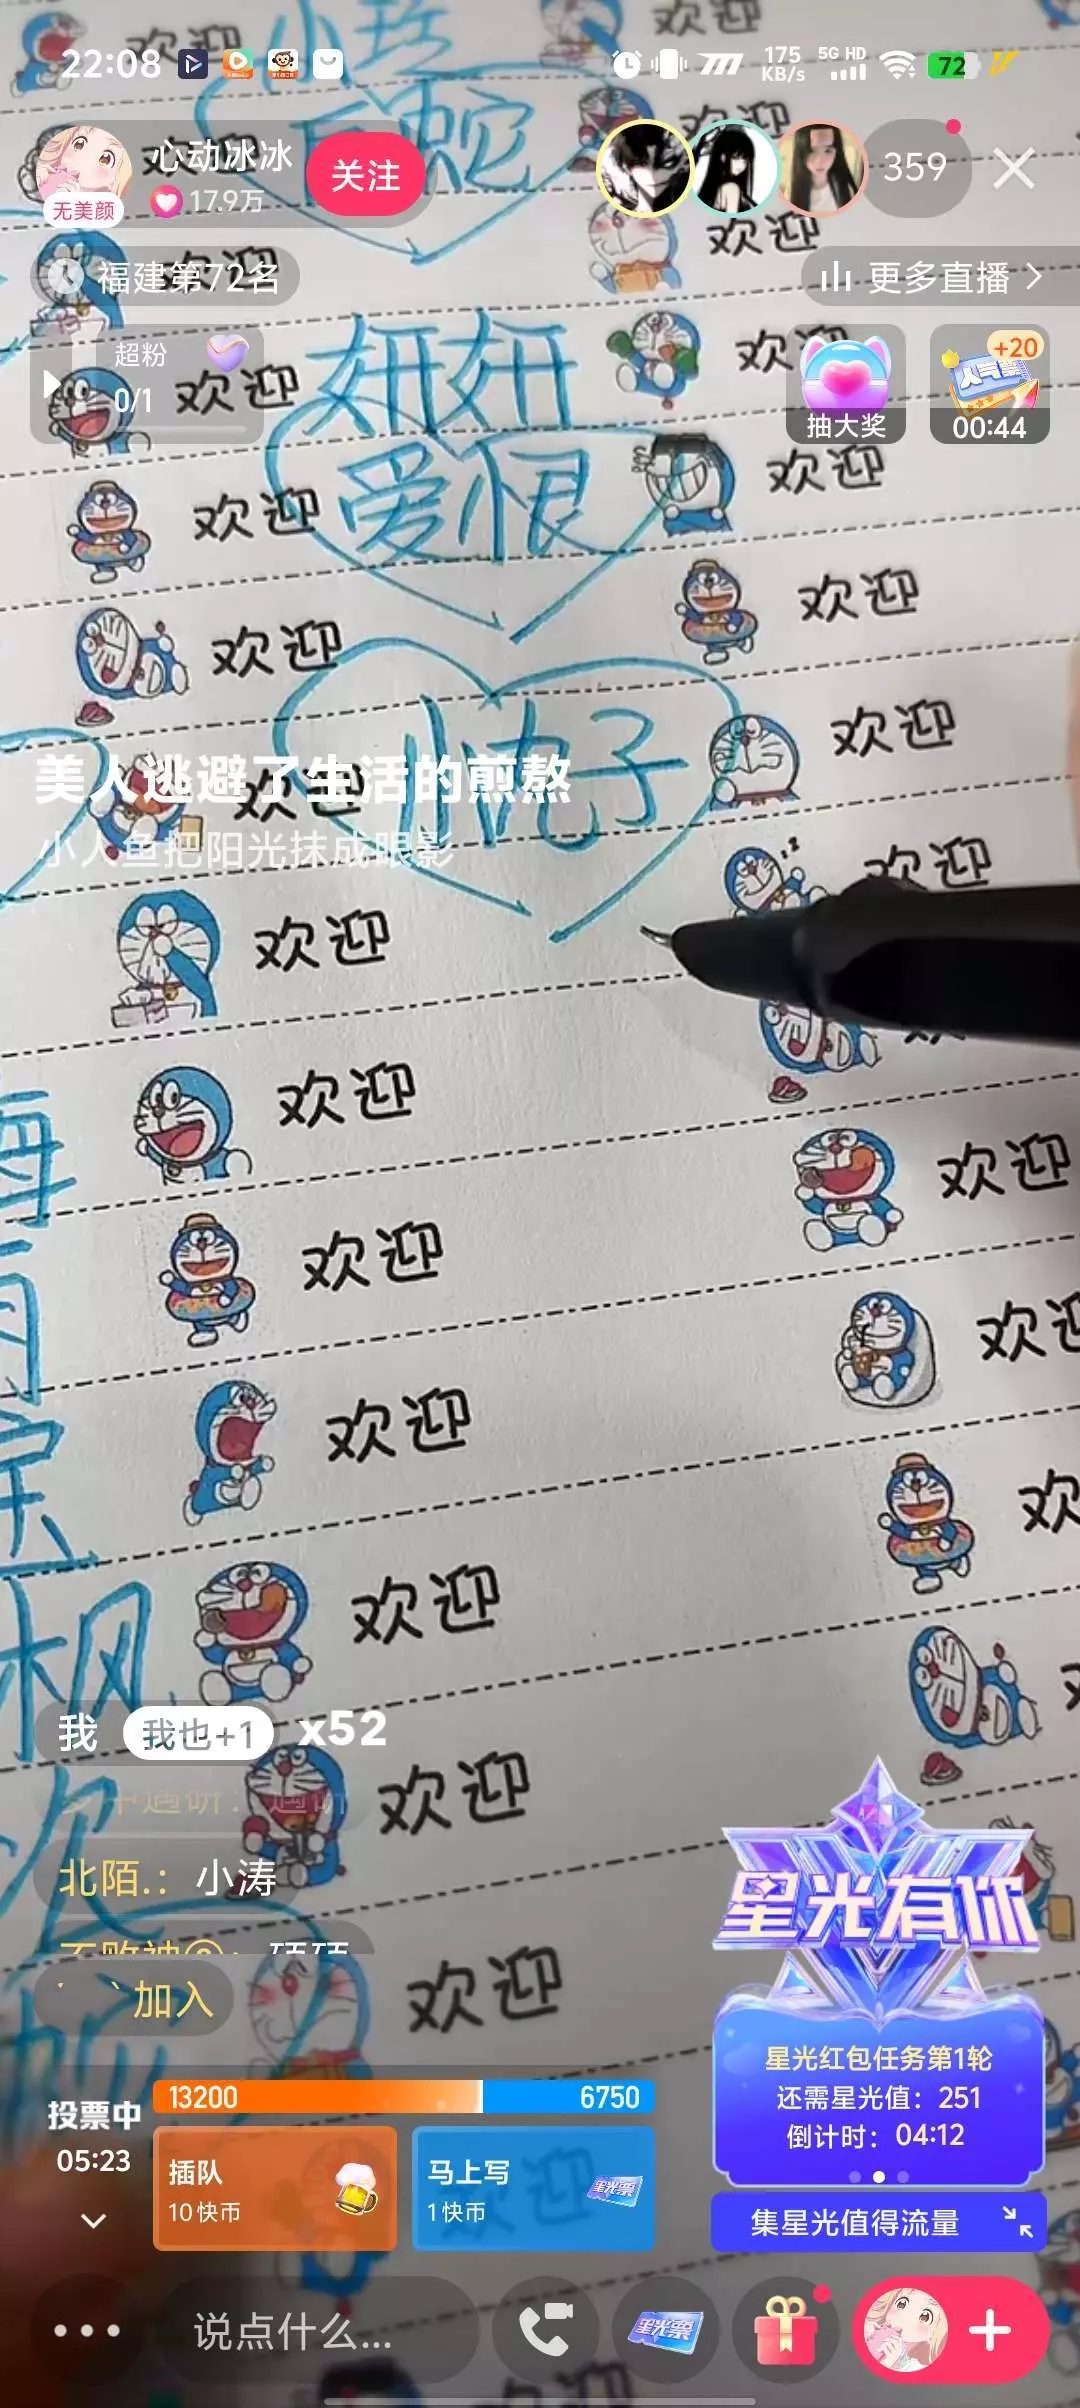 小珍
欢迎
欢迎
22:08
175 KB/s
5G HD
72
欢迎
心动冰冰
17.9万
无美颜
关注
359
欢迎
福建第72名
更多直播
超粉
0/1
欢迎
妍妍
欢迎
抽大奖
+20
人气票
00:44
欢迎
爱恨
欢迎
欢迎
欢迎
欢迎
小丸子
欢迎
美人逃避了生活的煎熬
小人鱼把阳光抹成眼影
欢迎
欢迎
欢迎
欢迎
欢迎
欢迎
欢迎
欢迎
欢迎
欢迎
枫
我
我也+1
x52
欢迎
北陌.：小涛
加入
欢迎
星光有你
星光红包任务第1轮
还需星光值：251
倒计时：04:12
集星光值得流量
投票中
05:23
13200
6750
插队
10快币
马上写
1快币
星光票
说点什么...
星光票